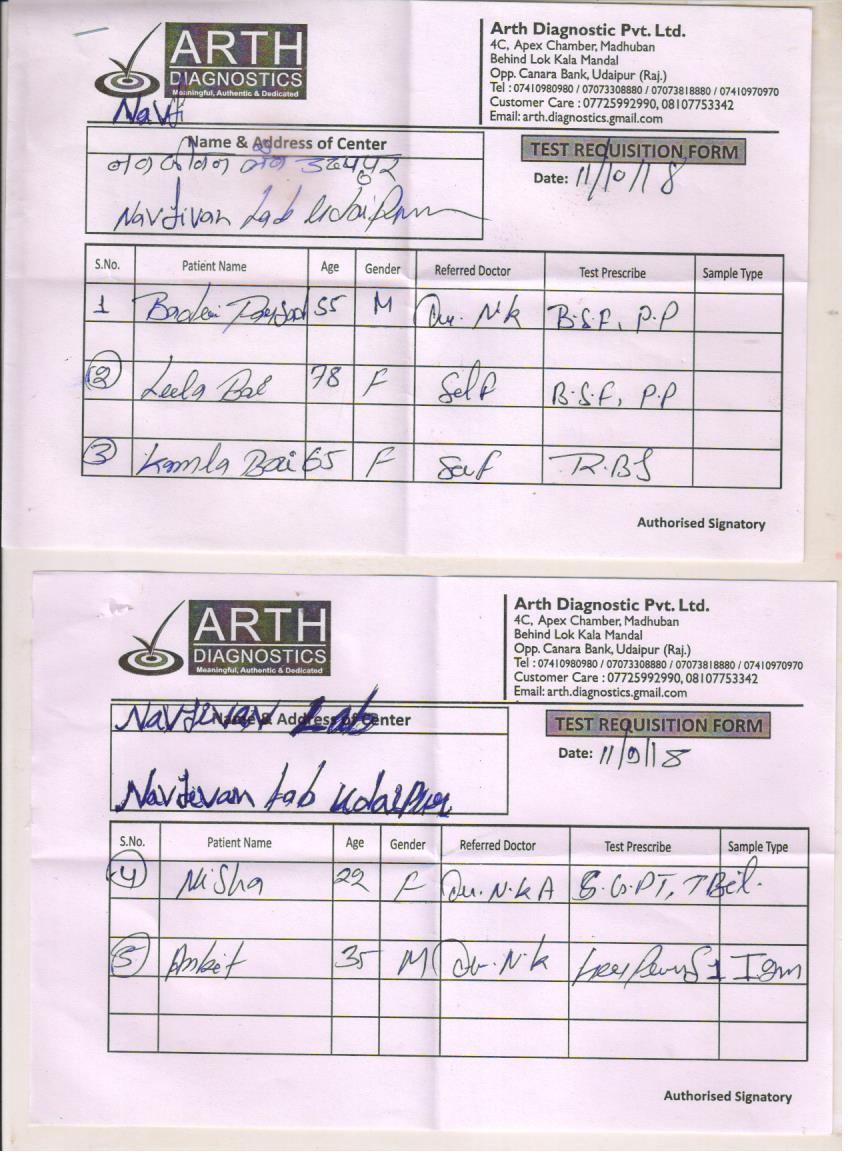 ARTH
DIAGNOSTICS
Meaningful, Authentic & Dedicated
Arth Diagnostic Pvt. Ltd.
4C, Apex Chamber, Madhuban
Behind Lok Kala Mandal
Opp. Canara Bank, Udaipur (Raj.)
Tel : 07410980980 / 07073308880 / 07073818880 / 07410970970
Customer Care : 07725992990, 08107753342
Email: arth.diagnostics.gmail.com
Navji
Name & Address of Center
TEST REQUISITION FORM
Date: 11/10/18
Navjivan Lab Udaipur
S.No. Patient Name Age Gender Referred Doctor Test Prescribe Sample Type
1 55 M Dr. N.K B.S.F, P.P
2 Leela Bai 78 F Self B.S.F, P.P
3 Kamla Bai 65 F Self R.B.S
Authorised Signatory
ARTH
DIAGNOSTICS
Meaningful, Authentic & Dedicated
Arth Diagnostic Pvt. Ltd.
4C, Apex Chamber, Madhuban
Behind Lok Kala Mandal
Opp. Canara Bank, Udaipur (Raj.)
Tel : 07410980980 / 07073308880 / 07073818880 / 07410970970
Customer Care : 07725992990, 08107753342
Email: arth.diagnostics.gmail.com
Navjevan Lab
Name & Address of Center
TEST REQUISITION FORM
Date:
Navjevan Lab Udaipur
S.No. Patient Name Age Gender Referred Doctor Test Prescribe Sample Type
4 Nisha 22 F Dr. N.K A S.G.PT, T Bil.
5 Ankit 35 M Dr. N.K Igm
Authorised Signatory